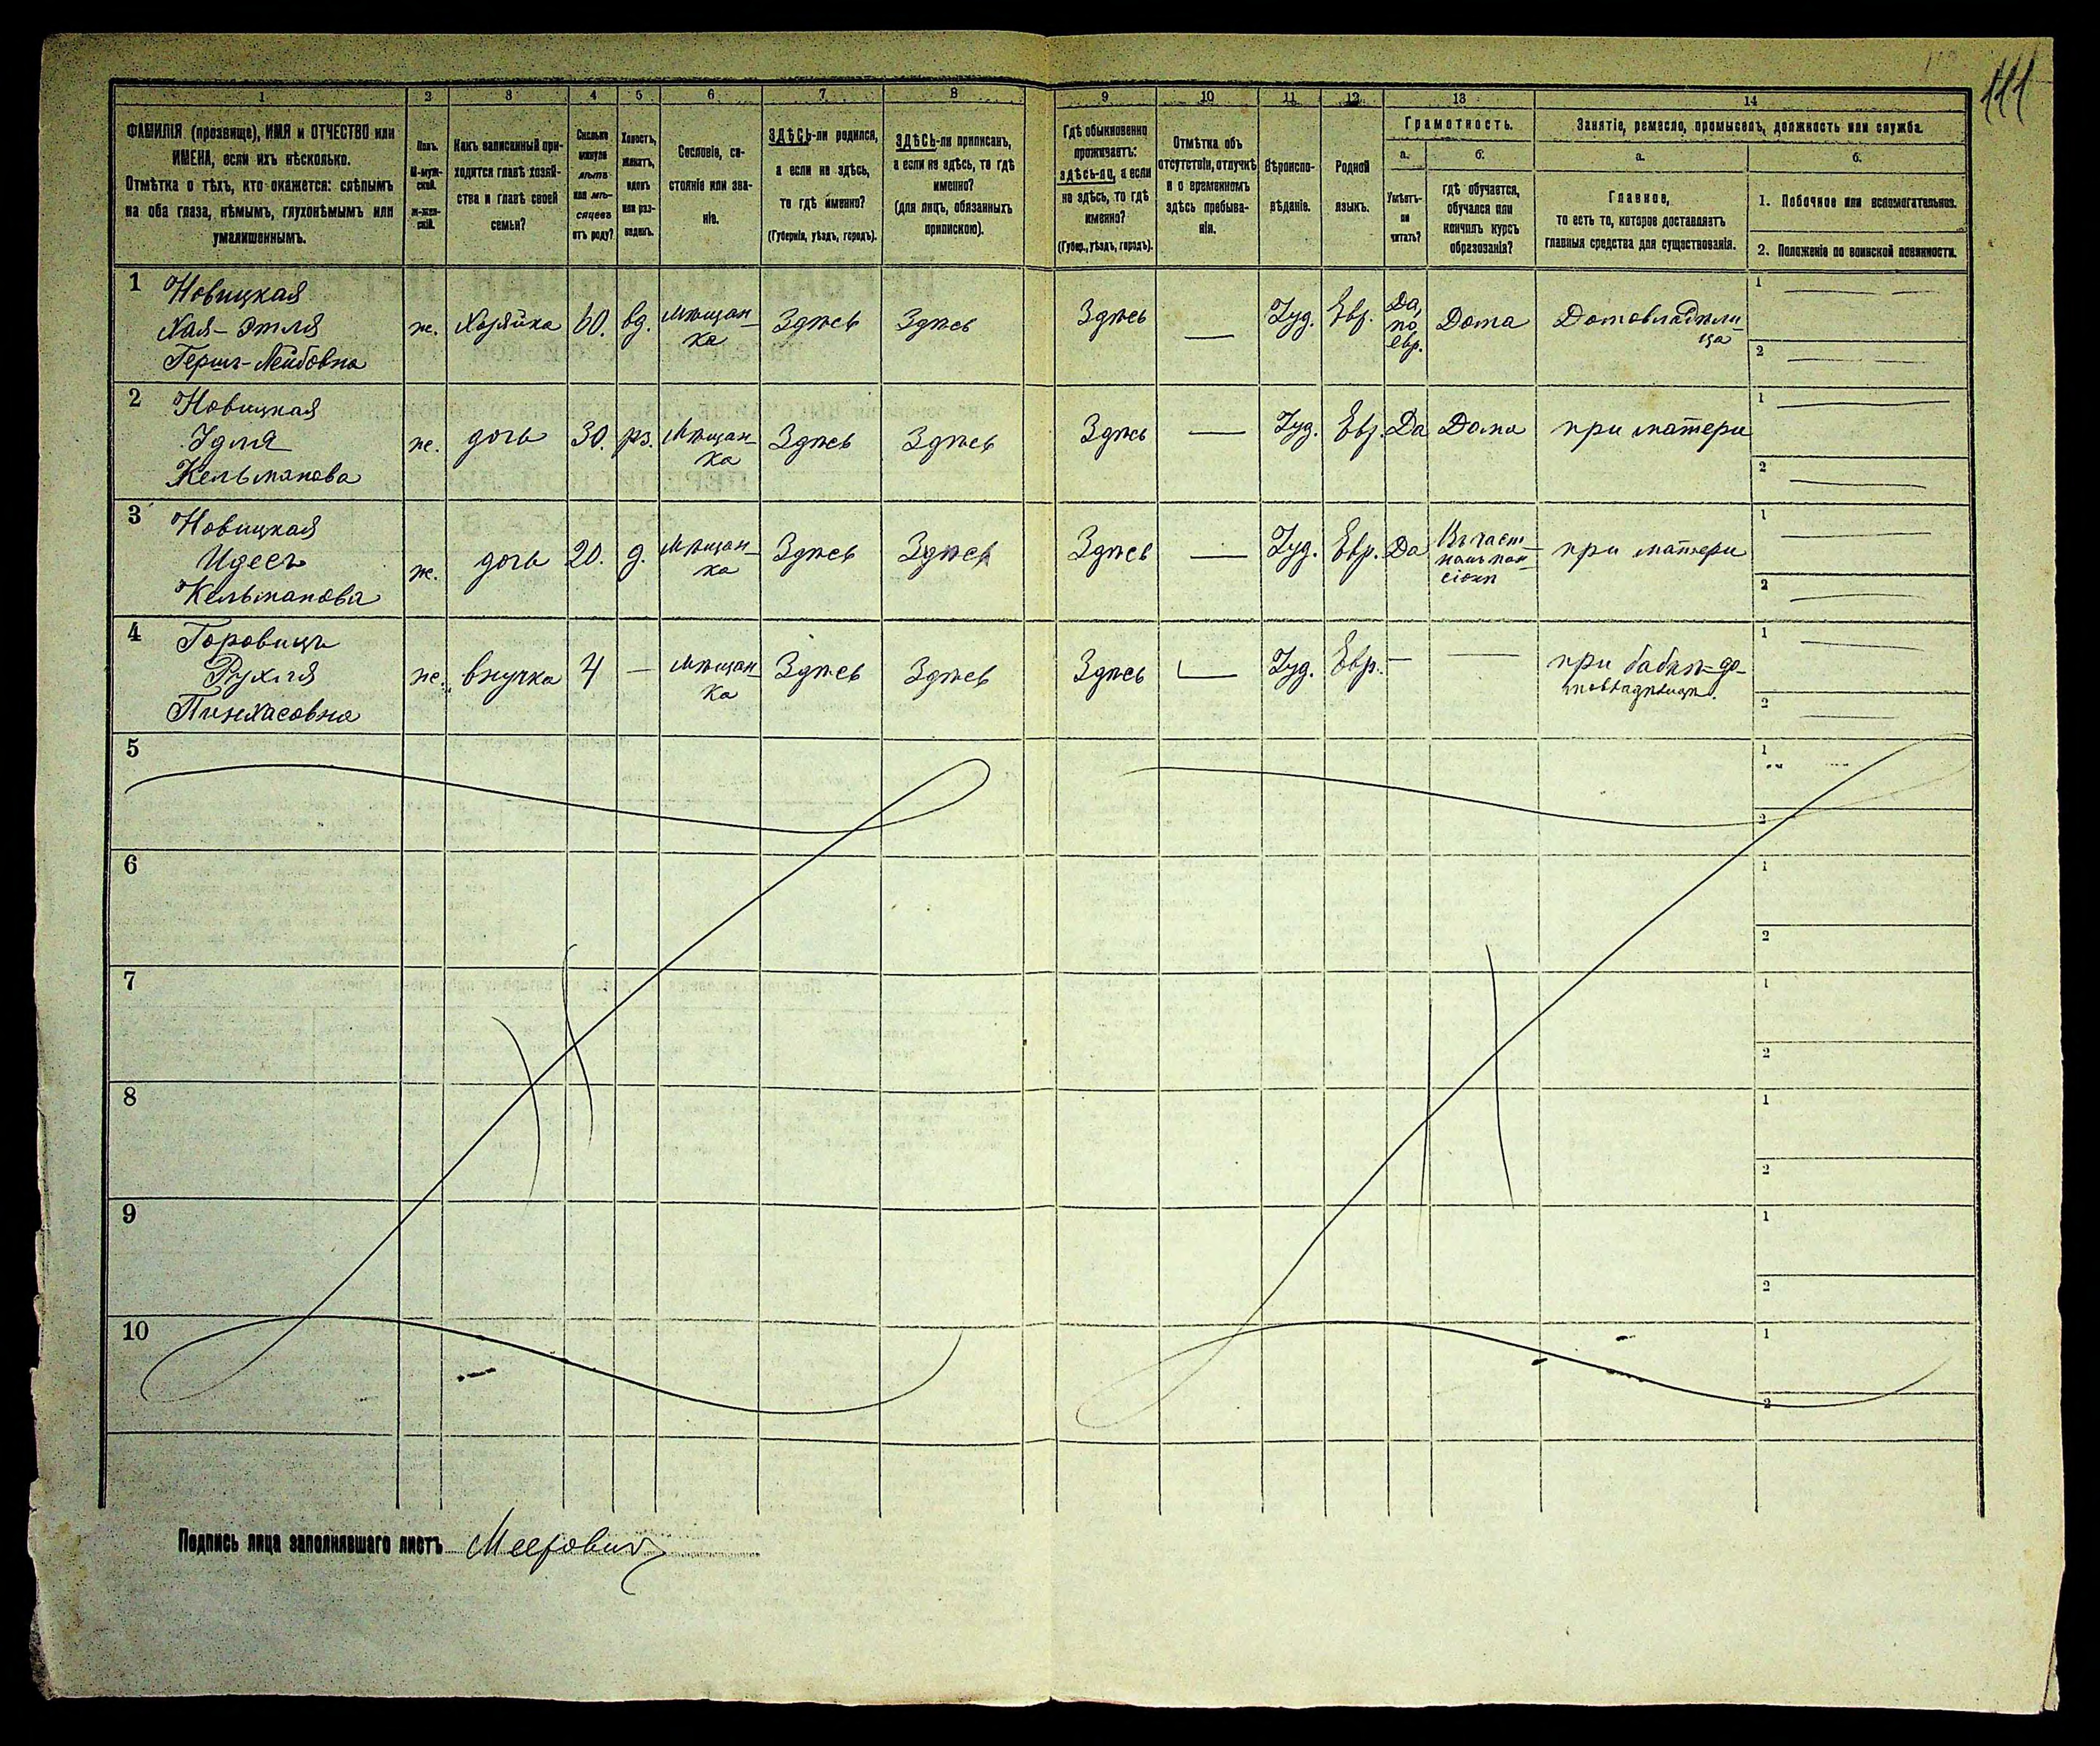 111
1 2 3 4 5 6 7 8 9 10 11 12 13 14
ФАМИЛІЯ (прозвище), ИМЯ и ОТЧЕСТВО или
ИМЕНА, если ихъ нѣсколько.
Отмѣтка о тѣхъ, кто окажется: слѣпымъ
на оба глаза, нѣмымъ, глухонѣмымъ или
умалишеннымъ.
Полъ.
М-муж-
ской.
ж-жен-
скій.
Какъ записанный при-
ходится главѣ хозяй-
ства и главѣ своей
семьи?
Сколько
минуло
лѣтъ
или мѣ-
сяцевъ
отъ роду?
Холостъ,
женатъ,
вдовъ
или раз-
веденъ.
Сословіе, со-
стояніе или зва-
ніе.
ЗДѢСЬ-ли родился,
а если не здѣсь,
то гдѣ именно?
(Губернія, уѣздъ, городъ).
ЗДѢСЬ-ли приписанъ,
а если не здѣсь, то гдѣ
именно?
(для лицъ, обязанныхъ
припиской).
Гдѣ обыкновенно
проживаетъ:
здѣсь-ли, а если
не здѣсь, то гдѣ
именно?
(Губер., уѣздъ, городъ).
Отмѣтка объ
отсутствіи, отлучкѣ
и о временномъ
здѣсь пребыва-
ніи.
Вѣроиспо-
вѣданіе.
Родной
языкъ.
Грамотность.
а.
Умѣетъ-
ли
читать?
б.
гдѣ обучается,
обучался или
кончилъ курсъ
образованія?
Занятіе, ремесло, промыселъ, должность или служба.
а.
Главное,
то есть то, которое доставляетъ
главныя средства для существованія.
б.
1. Побочное или вспомогательное.
2. Положеніе по воинской повинности.
1 Новицкая
Хая-Этля
Герш-Лейбовна
ж. Хозяйка 60. вд. Мѣщан-
ка
Здѣсь Здѣсь Здѣсь — Іуд. Евр. Да,
по
евр.
Дома Домовладѣли-
ца
1
2
2 Новицкая
Идля
Кельманова
ж. дочь 30. рз. Мѣщан-
ка
Здѣсь Здѣсь Здѣсь — Іуд. Евр. Да Дома при матери
1
2
3 Новицкая
Идесъ
Кельманова
ж. дочь 20. д. Мѣщан-
ка
Здѣсь Здѣсь Здѣсь — Іуд. Евр. Да Въ част-
номъ пан-
сіонѣ
при матери
1
2
4 Горовицъ
Рухля
Пинхасовна
ж. внучка 4 — Мѣщан-
ка
Здѣсь Здѣсь Здѣсь — Іуд. Евр. — — при бабкѣ-до-
мовладѣлицѣ.
1
2
5
1
2
6
1
2
7
1
2
8
1
2
9
1
2
10
1
2
Подпись лица заполнявшаго листъ Меерович